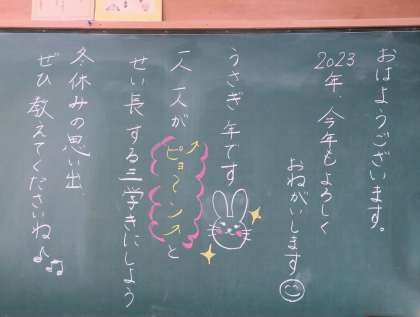 おはようございます。
2023年、今年もよろしく
おねがいします
うさぎ年です
一人一人が
ピョ〜ンプと
せい長する三学きにしよう
冬休みの思い出、
ぜひ教えてくださいね